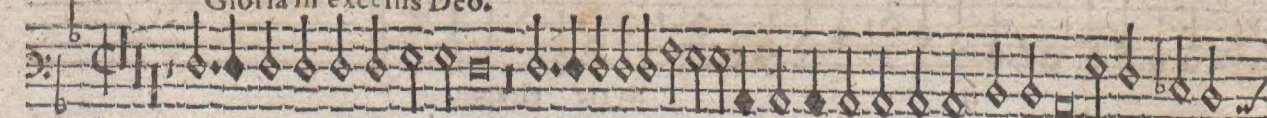 Gloria in excelsis Deo.